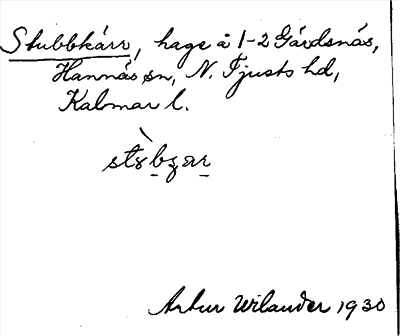 Stubbkärr, hage å 1-2 Gärdsnäs,
Hannäs sn, N. Tjusts hd,
Kalmar l.
Artur Wilander 1930